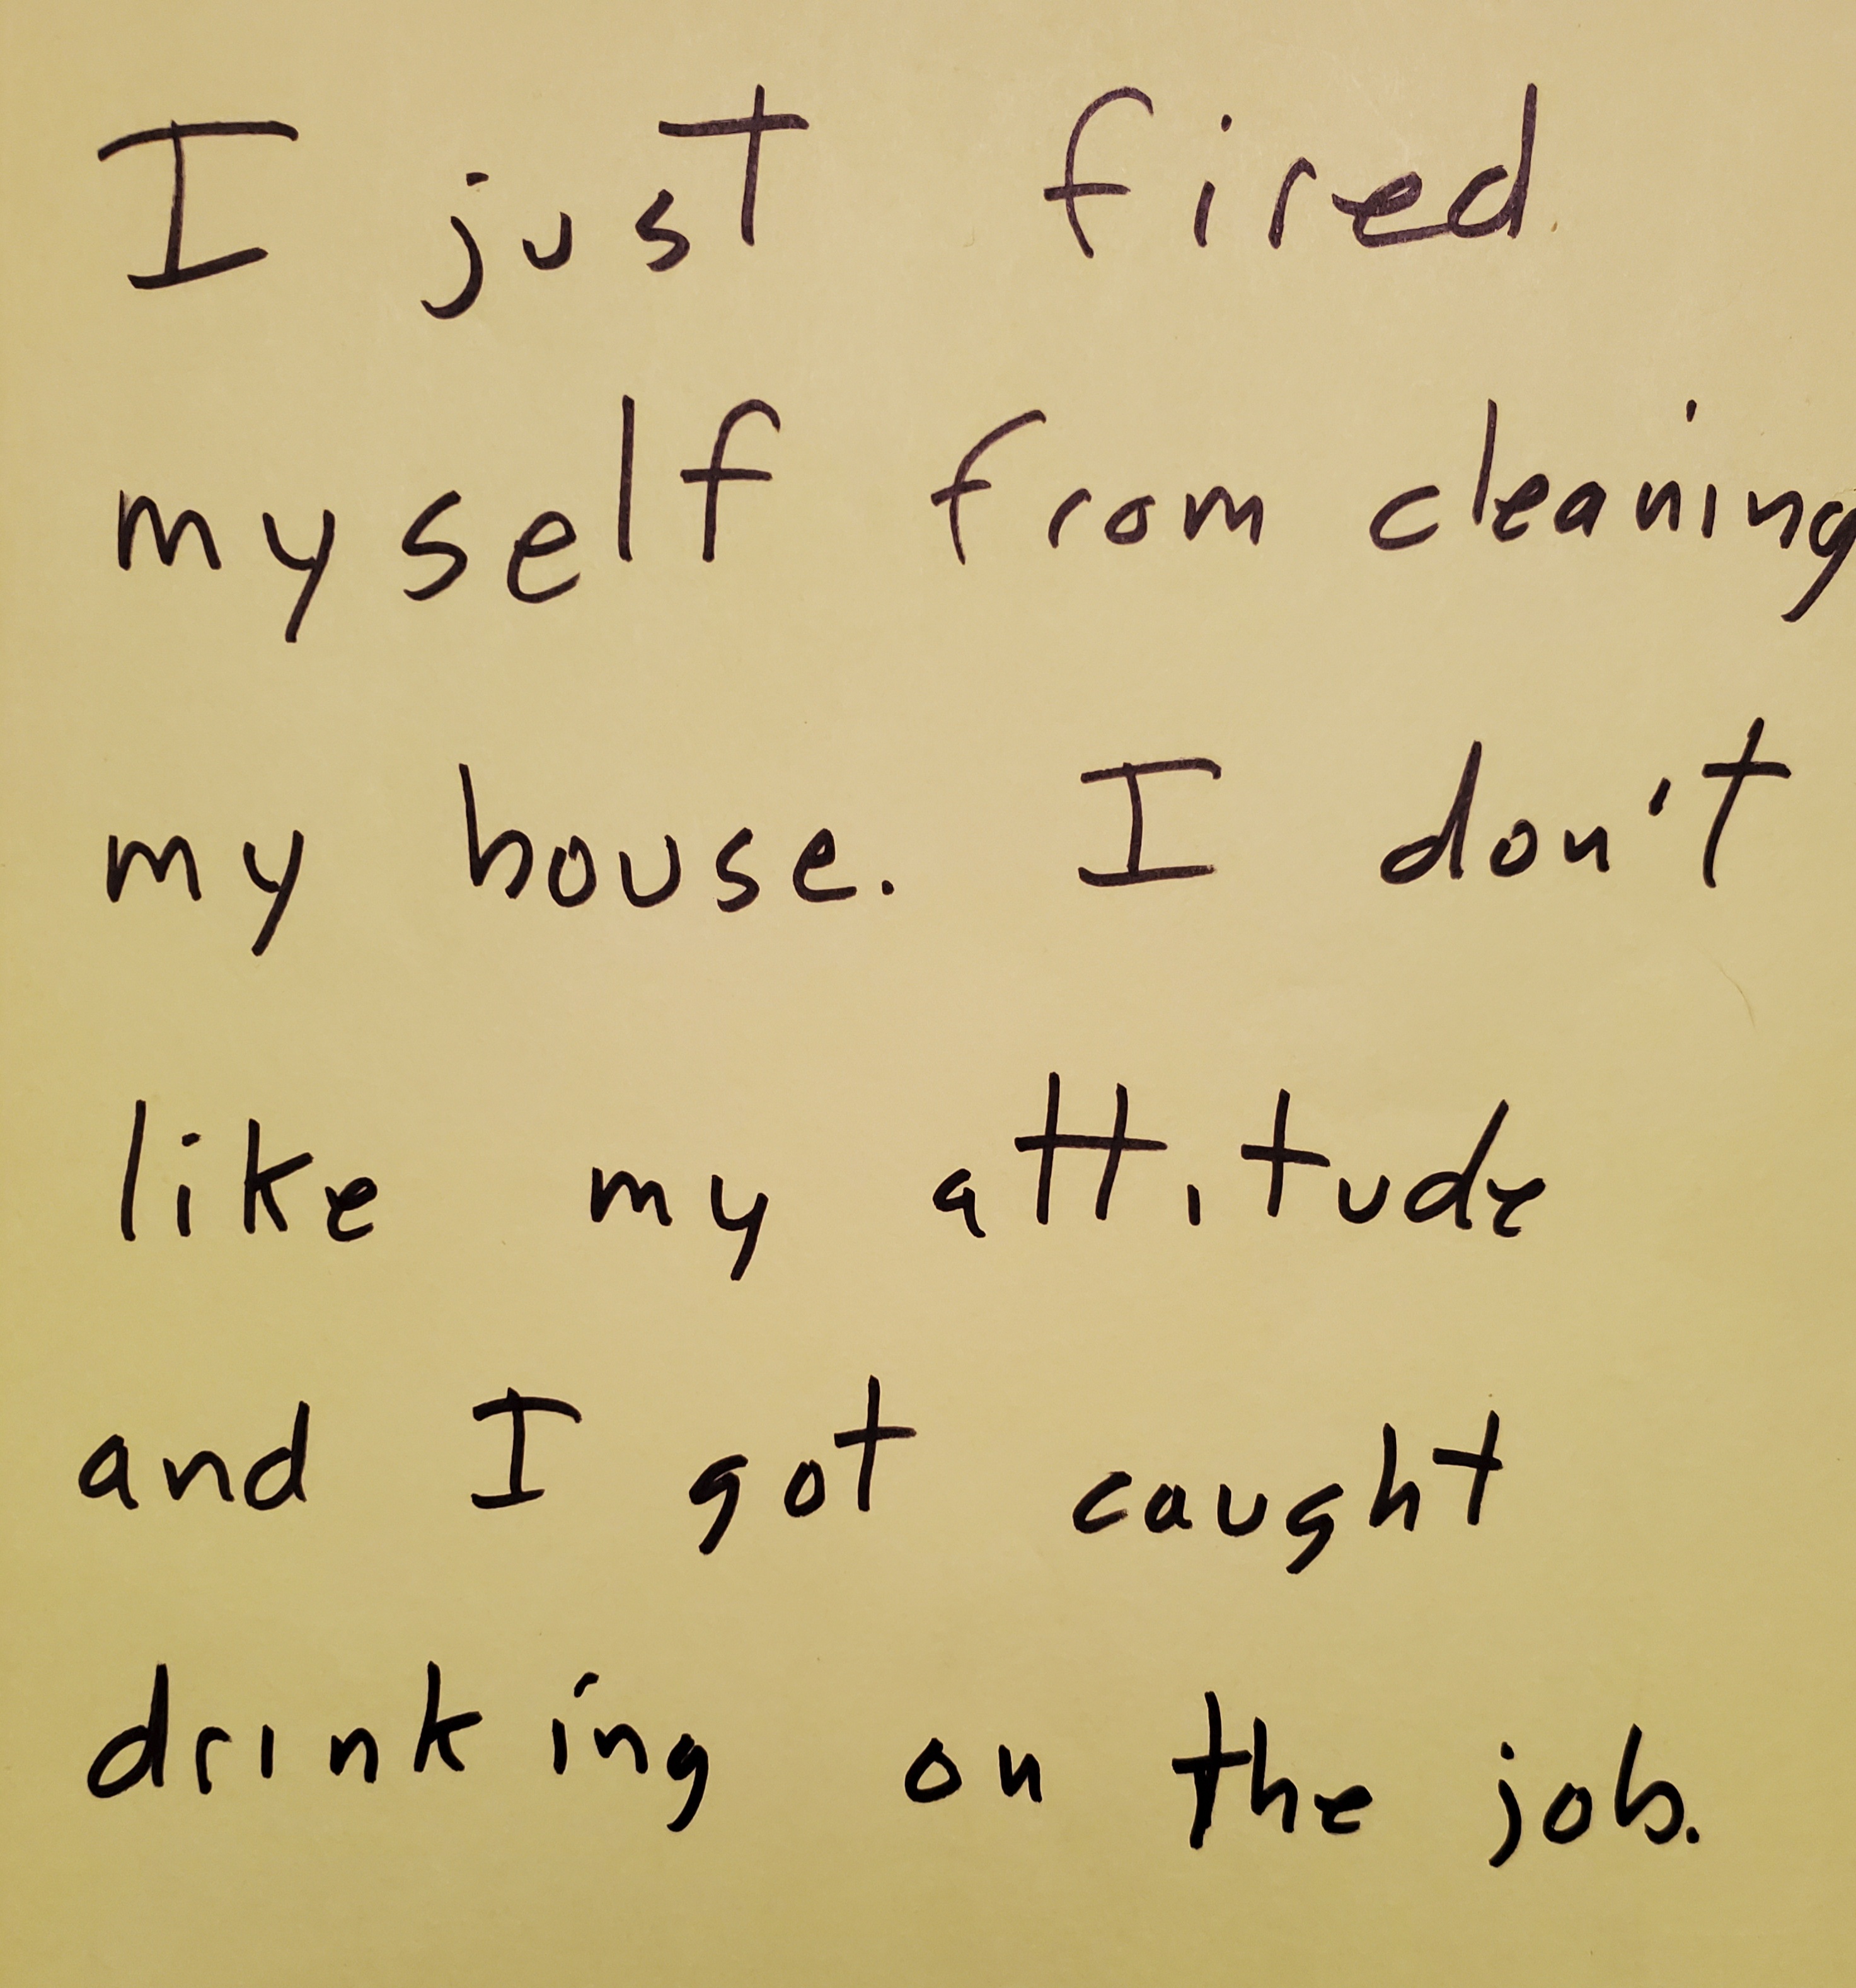 I just fired
myself from cleaning
my house. I don't
like my attitude
and I got caught
drinking on the job.